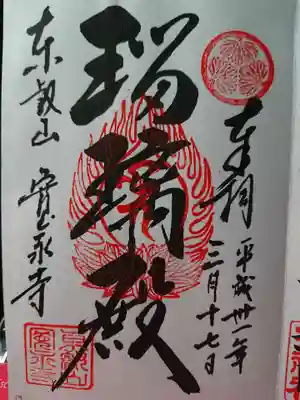 奉拝
平成卅一年
三月十七日
瑠璃殿
東叡山 寛永寺